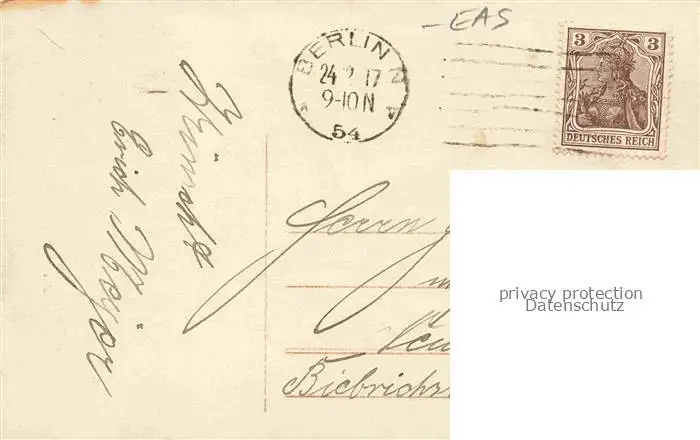 EAS
BERLIN N
24 2 17
9-10 N
54
3 3
DEUTSCHES REICH
Erich Meyer
Herrn
privacy protection
Datenschutz
Biebrich